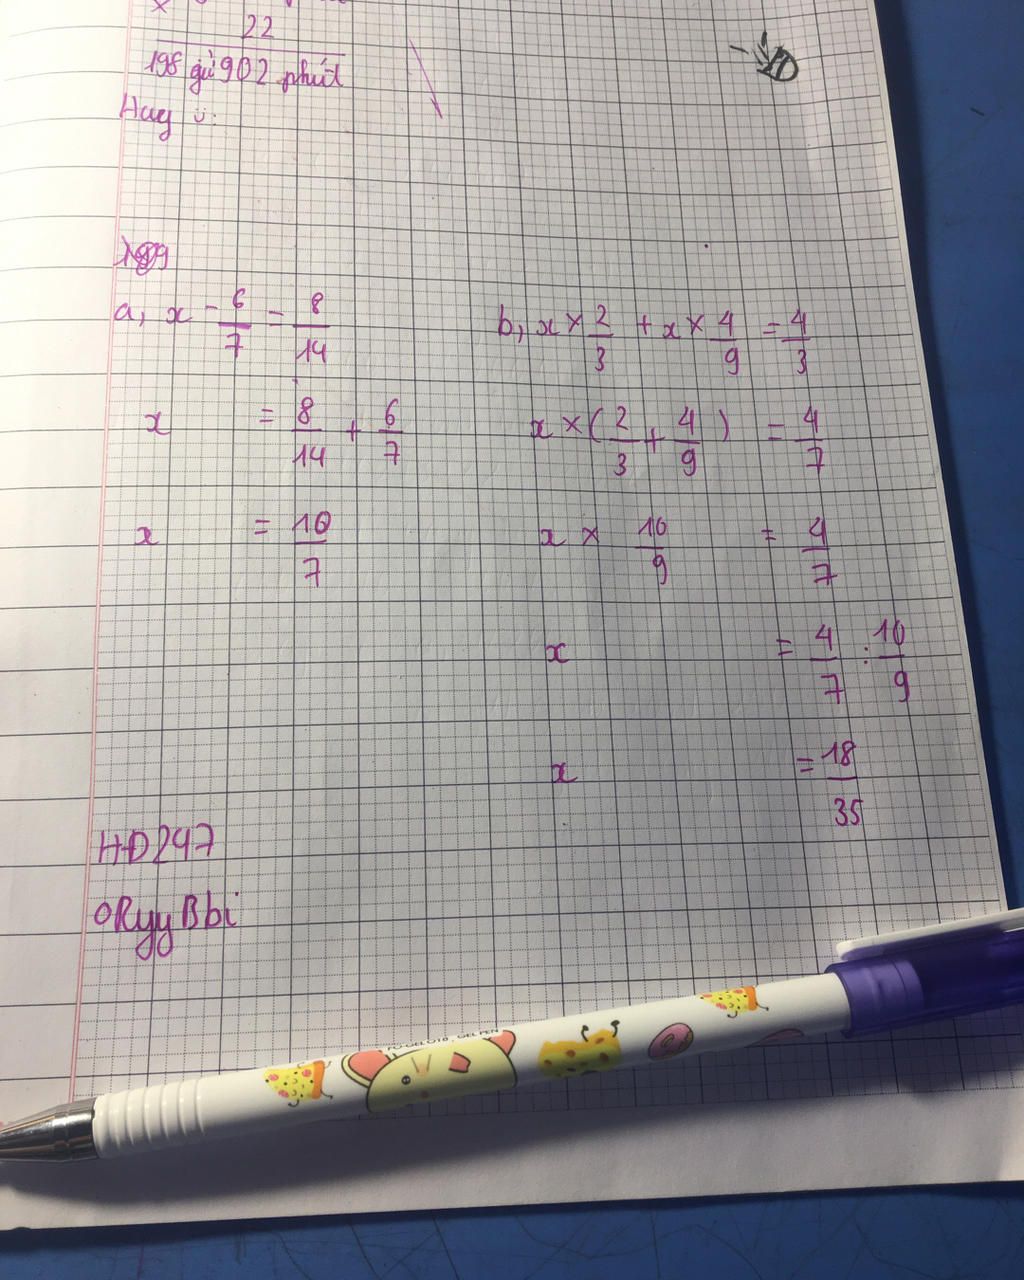 22
198 giờ 902 phút
Hay ü:
189
a, x - 6/7 = 8/14
x = 8/14 + 6/7
x = 10/7
b, x × 2/3 + x × 4/9 = 4/3
x × ( 2/3 + 4/9 ) = 4/7
x × 10/9 = 4/7
x = 4/7 : 10/9
x = 18/35
HĐ247
ORyyBbi
GEL PEN